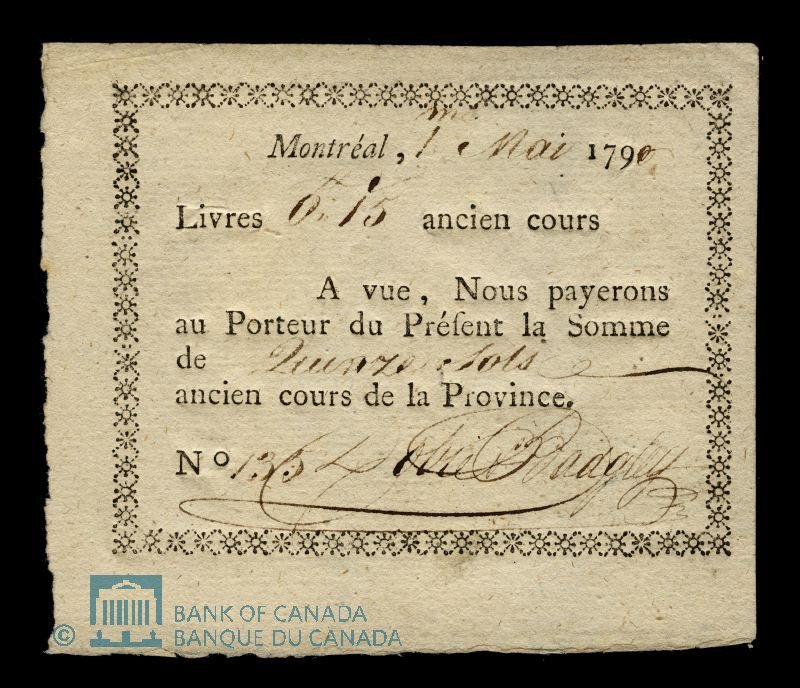 Montréal, 1me Mai 1790
Livres 0 " 15 ancien cours
A vue, Nous payerons
au Porteur du Préſent la Somme
de Quinze Sols
ancien cours de la Province.
No 1354 Badgley
© BANK OF CANADA
BANQUE DU CANADA